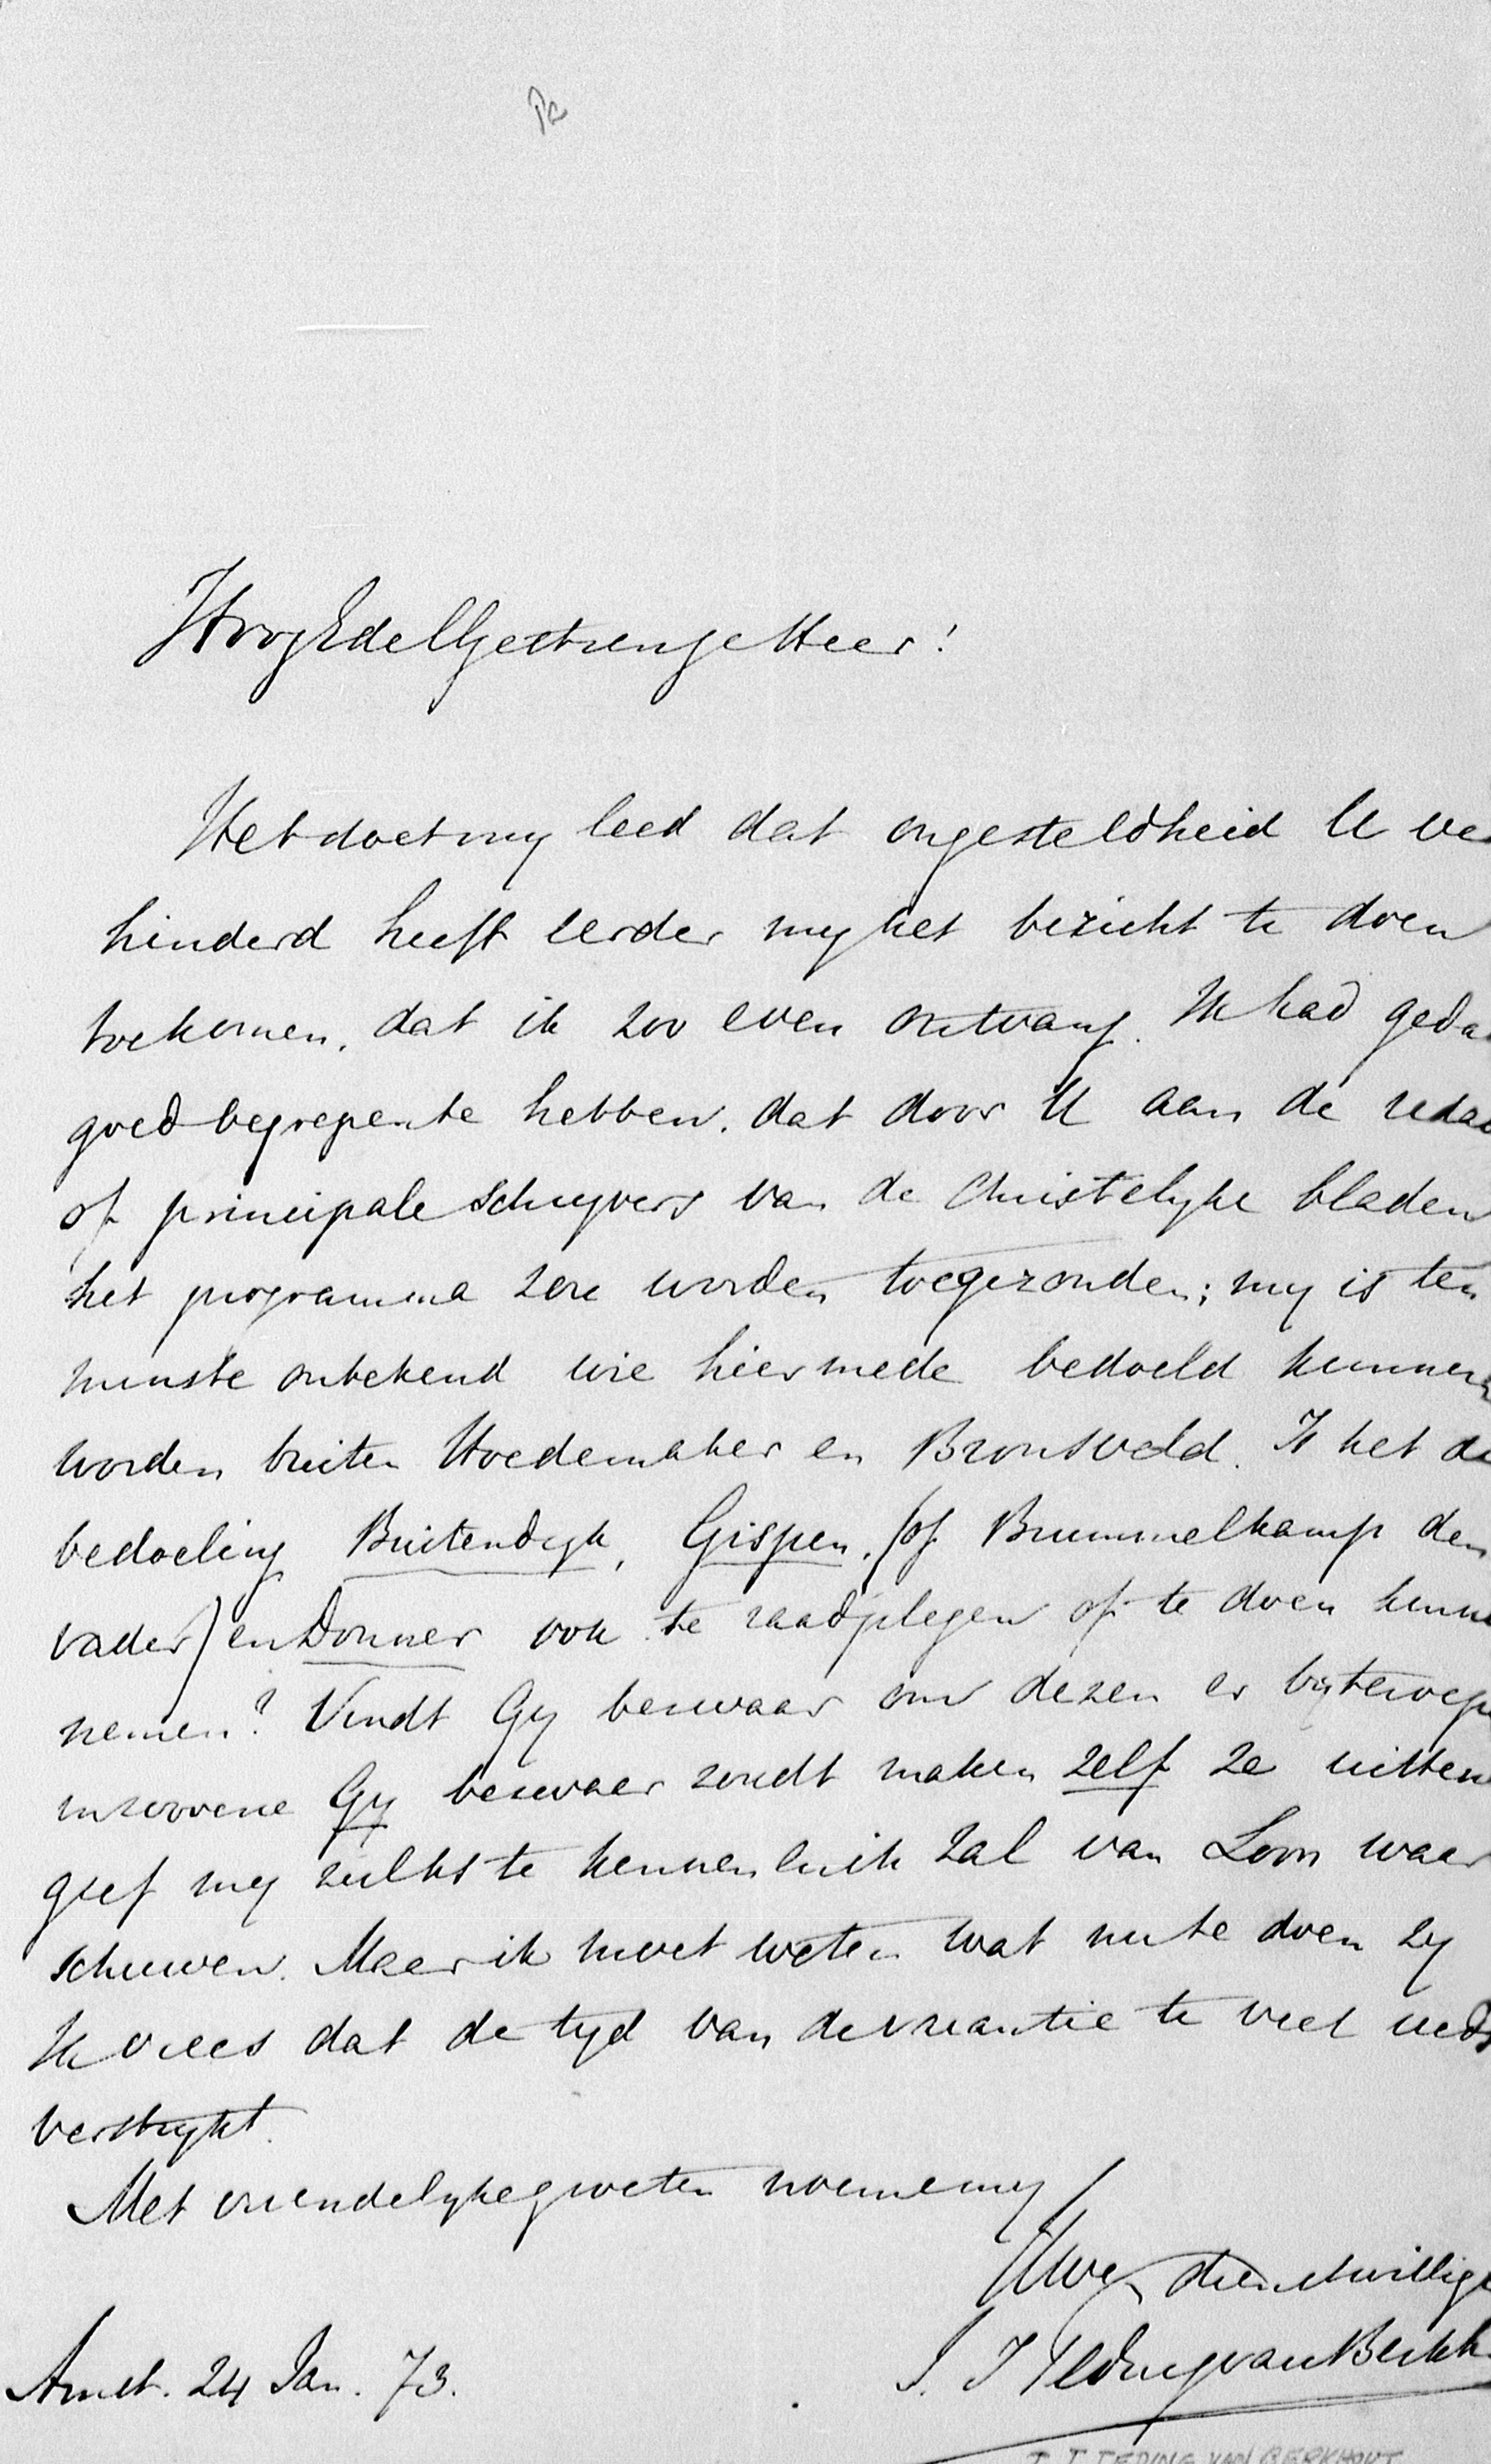 HoogEdelGestrenge Heer!
Het doet my leed dat ongesteldheid U ve
hinderd heeft eerder my het bericht te doen
toekomen, dat ik zoo even ontvang. Ik had geda
goed begrepen te hebben, dat door U aan de redac
of principale schryvers van de Christelyke bladen
het programma zou worden toegezonden; my is ten
minste onbekend wie hiermede bedoeld kunnen
worden buiten Hoedemaker en Bronsveld. Is het de
bedoeling Buitendyk, Gispen, (of Brummelkamp den
vader) en Donner ook te raadplegen of te doen kenn
nemen? Vindt Gy bezwaar om dezen er by te roep
in zooverre Gy bezwaar zoudt maken zelf ze uitten
geef my zulks te kennen en ik zal van Loon waar
schuwen. Maar ik moet weten wat nu te doen zy
Ik vrees dat de tyd van de vacantie te veel
verstrykt.
Met vriendelyke groeten noem my
Uwe dienstwillige
J. J Teding van Berkh
Amst. 24 Jan. 73.
J. J. TEDING VAN BERKHOUT